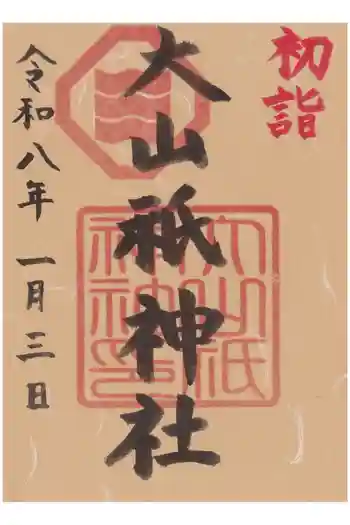 初詣
大山祇神社
令和八年 一月三日
大山祇
神社印